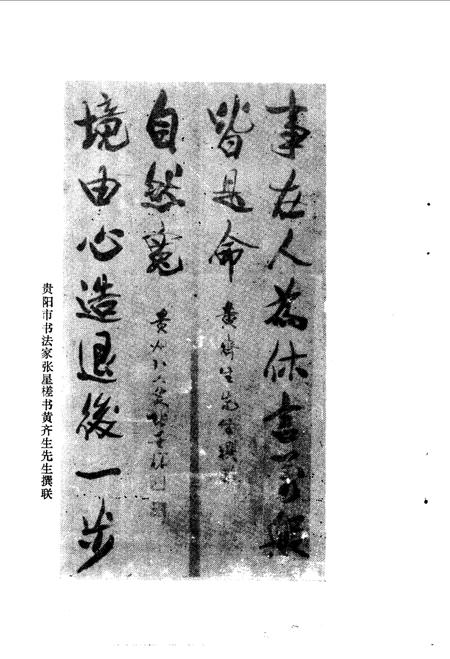 事在人為休言萬般
皆是命
黄齊生先生撰
境由心造退後一步
自然寬
贵阳市书法家张星槎书黄齐生先生撰联